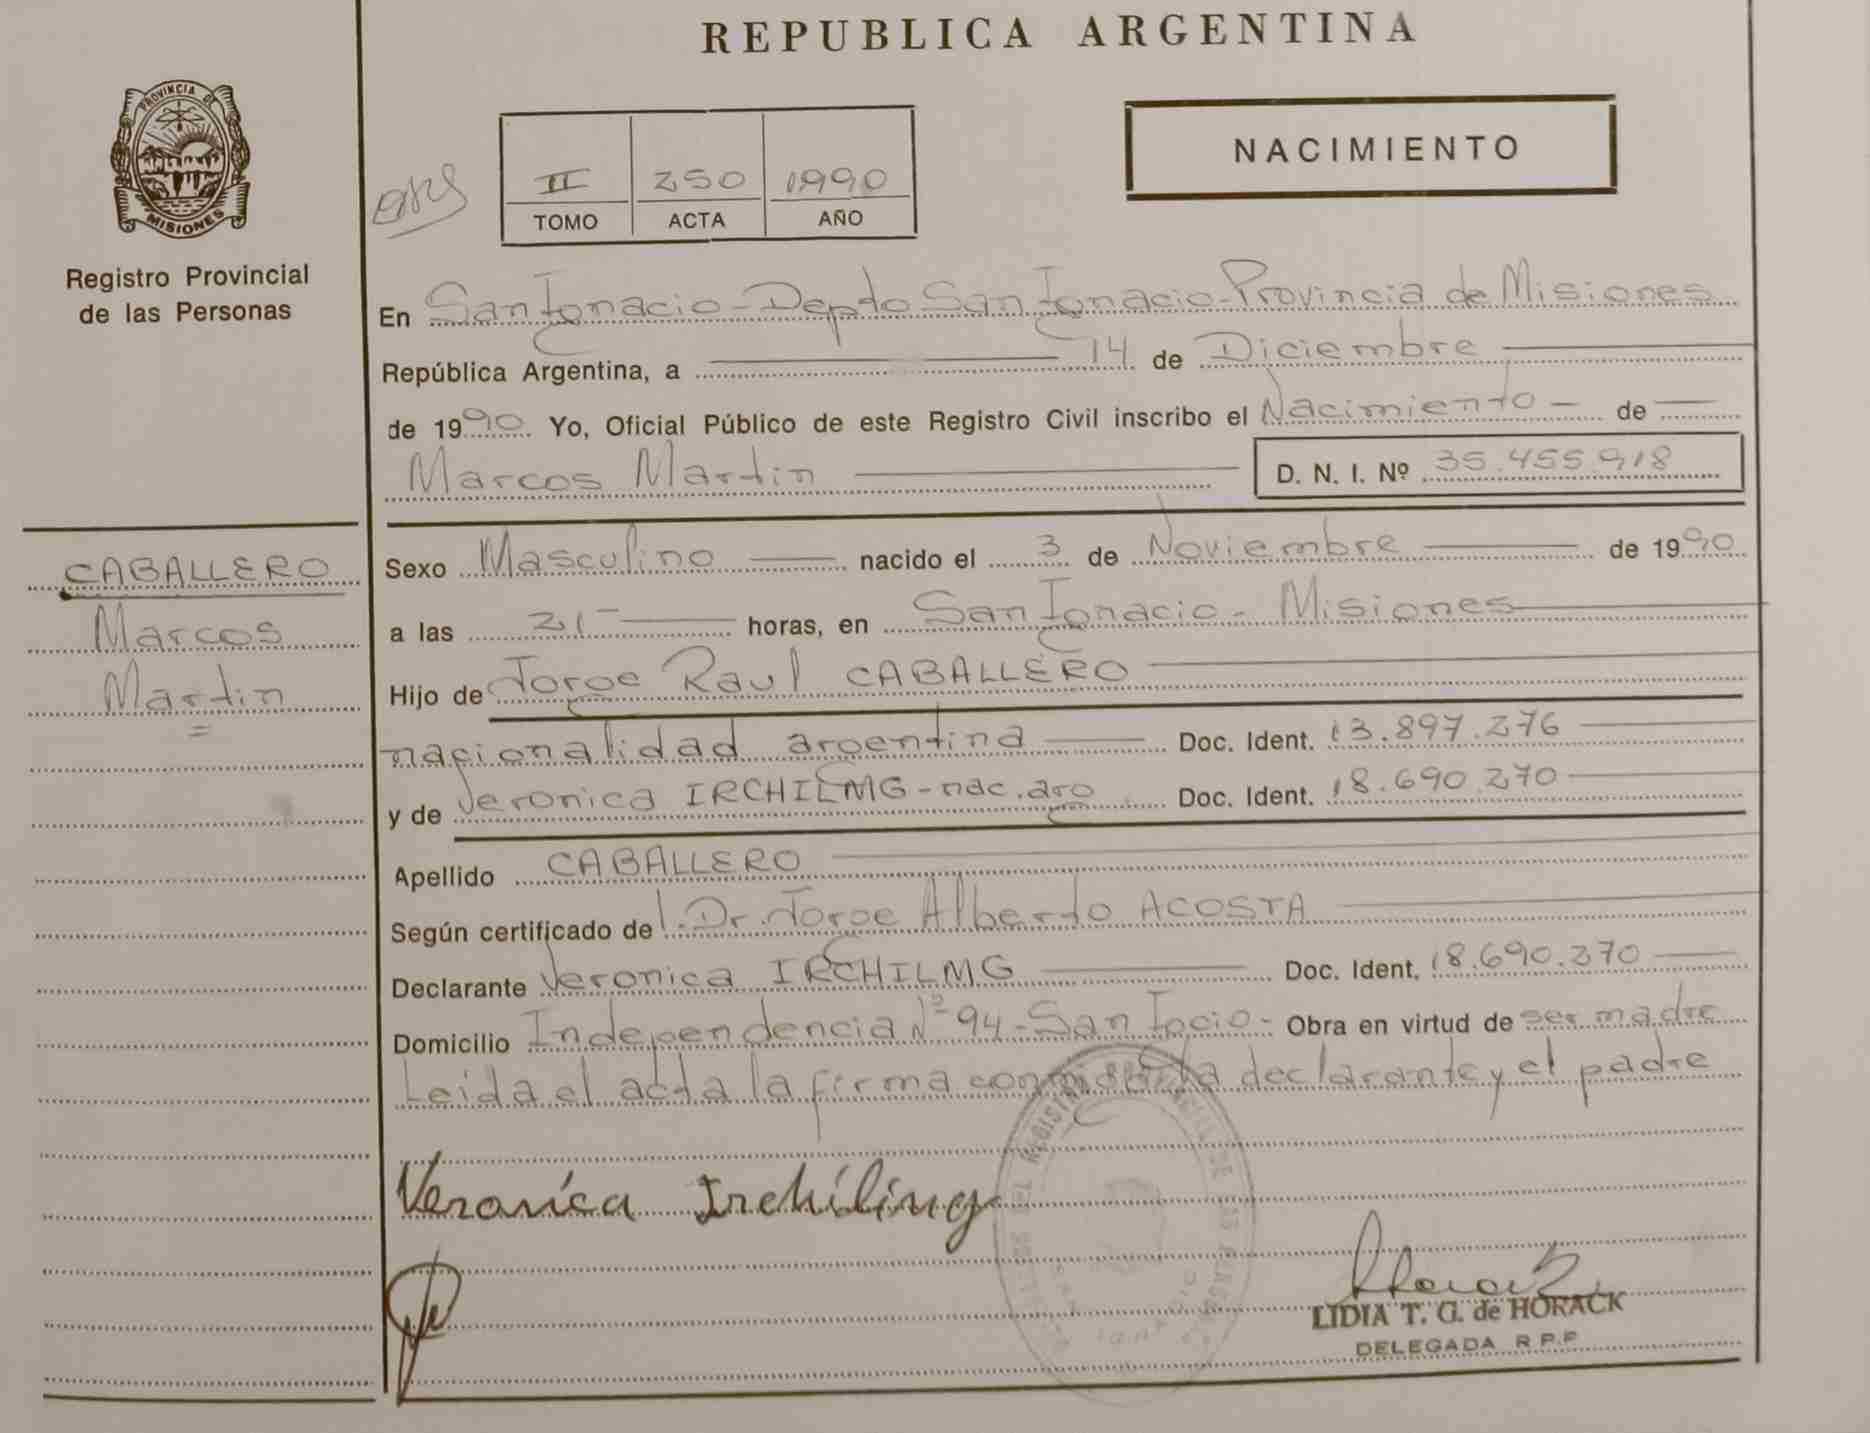 REPUBLICA ARGENTINA
PROVINCIA DE
MISIONES
Registro Provincial
de las Personas
II 250 1990
TOMO ACTA AÑO
NACIMIENTO
En San Ignacio - Depto San Ignacio - Provincia de Misiones
República Argentina, a 14 de Diciembre
de 1990 Yo, Oficial Público de este Registro Civil inscribo el Nacimiento - de
Marcos Martin D. N. I. Nº 35.455.918
CABALLERO
Marcos
Martin
Sexo Masculino nacido el 3 de Noviembre de 1990
a las 21 horas, en San Ignacio - Misiones
Hijo de Jorge Raul CABALLERO
nacionalidad argentina Doc. Ident. 13.897.276
y de Veronica IRCHILMG - nac. arg Doc. Ident. 18.690.270
Apellido CABALLERO
Según certificado de Dr. Jorge Alberto ACOSTA
Declarante Veronica IRCHILMG Doc. Ident. 18.690.270
Domicilio Independencia Nº 94 - San Igcio - Obra en virtud de ser madre
Leida el acta la firma conmigo la declarante y el padre
Veronica Irchiling
LIDIA T. G. de HORACK
DELEGADA R.P.P